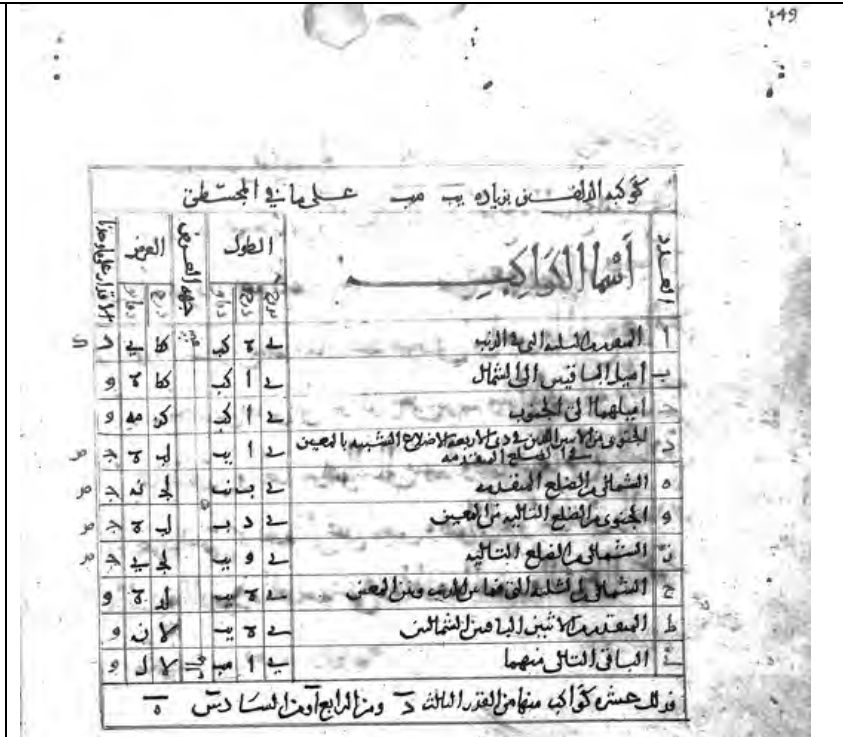 149
كوكبه الدلفـــين بزياده يب مب علــى ما في المجسطى
العدد أسما الكواكب الطول جهه العرض العرض الاقدار على ما وجدنا
بروج درج دقايق درج دقايق
ا المتقدم من الثلثه التي في الذنب ي ة كب كط ي د
ب اميل الباقيين الى الشمال ي ا كب كط ة و
ج اميلهما الى الجنوب ي ا كب كز مه و
د الجنوبى من الاثنين اللذين في ذى الاربعة الاضلاع الشبيه بالمعين
في الضلع المتقدمه ي ا يب لب ة ج
ه الشمالى من الضلع المتقدمه ي ب نب لج ن ج
و الجنوبى من الضلع التاليه من المعين ي د ب لب ة ج
ز الشمالى من الضلع التاليه ي و يب لج ي ج
ح الشمالى من الثلثه التى فيما بين الذنب وبين المعين ي ة يب لد ة و
ط المتقدم من الاثنين الباقيين الشماليين ي ة يب لا ن و
ي الباقى التالى منهما ي ا مب لا ل و
فذلك عشره كواكب منها من القدر الثالث د ومن الرابع ا ومن السادس ه